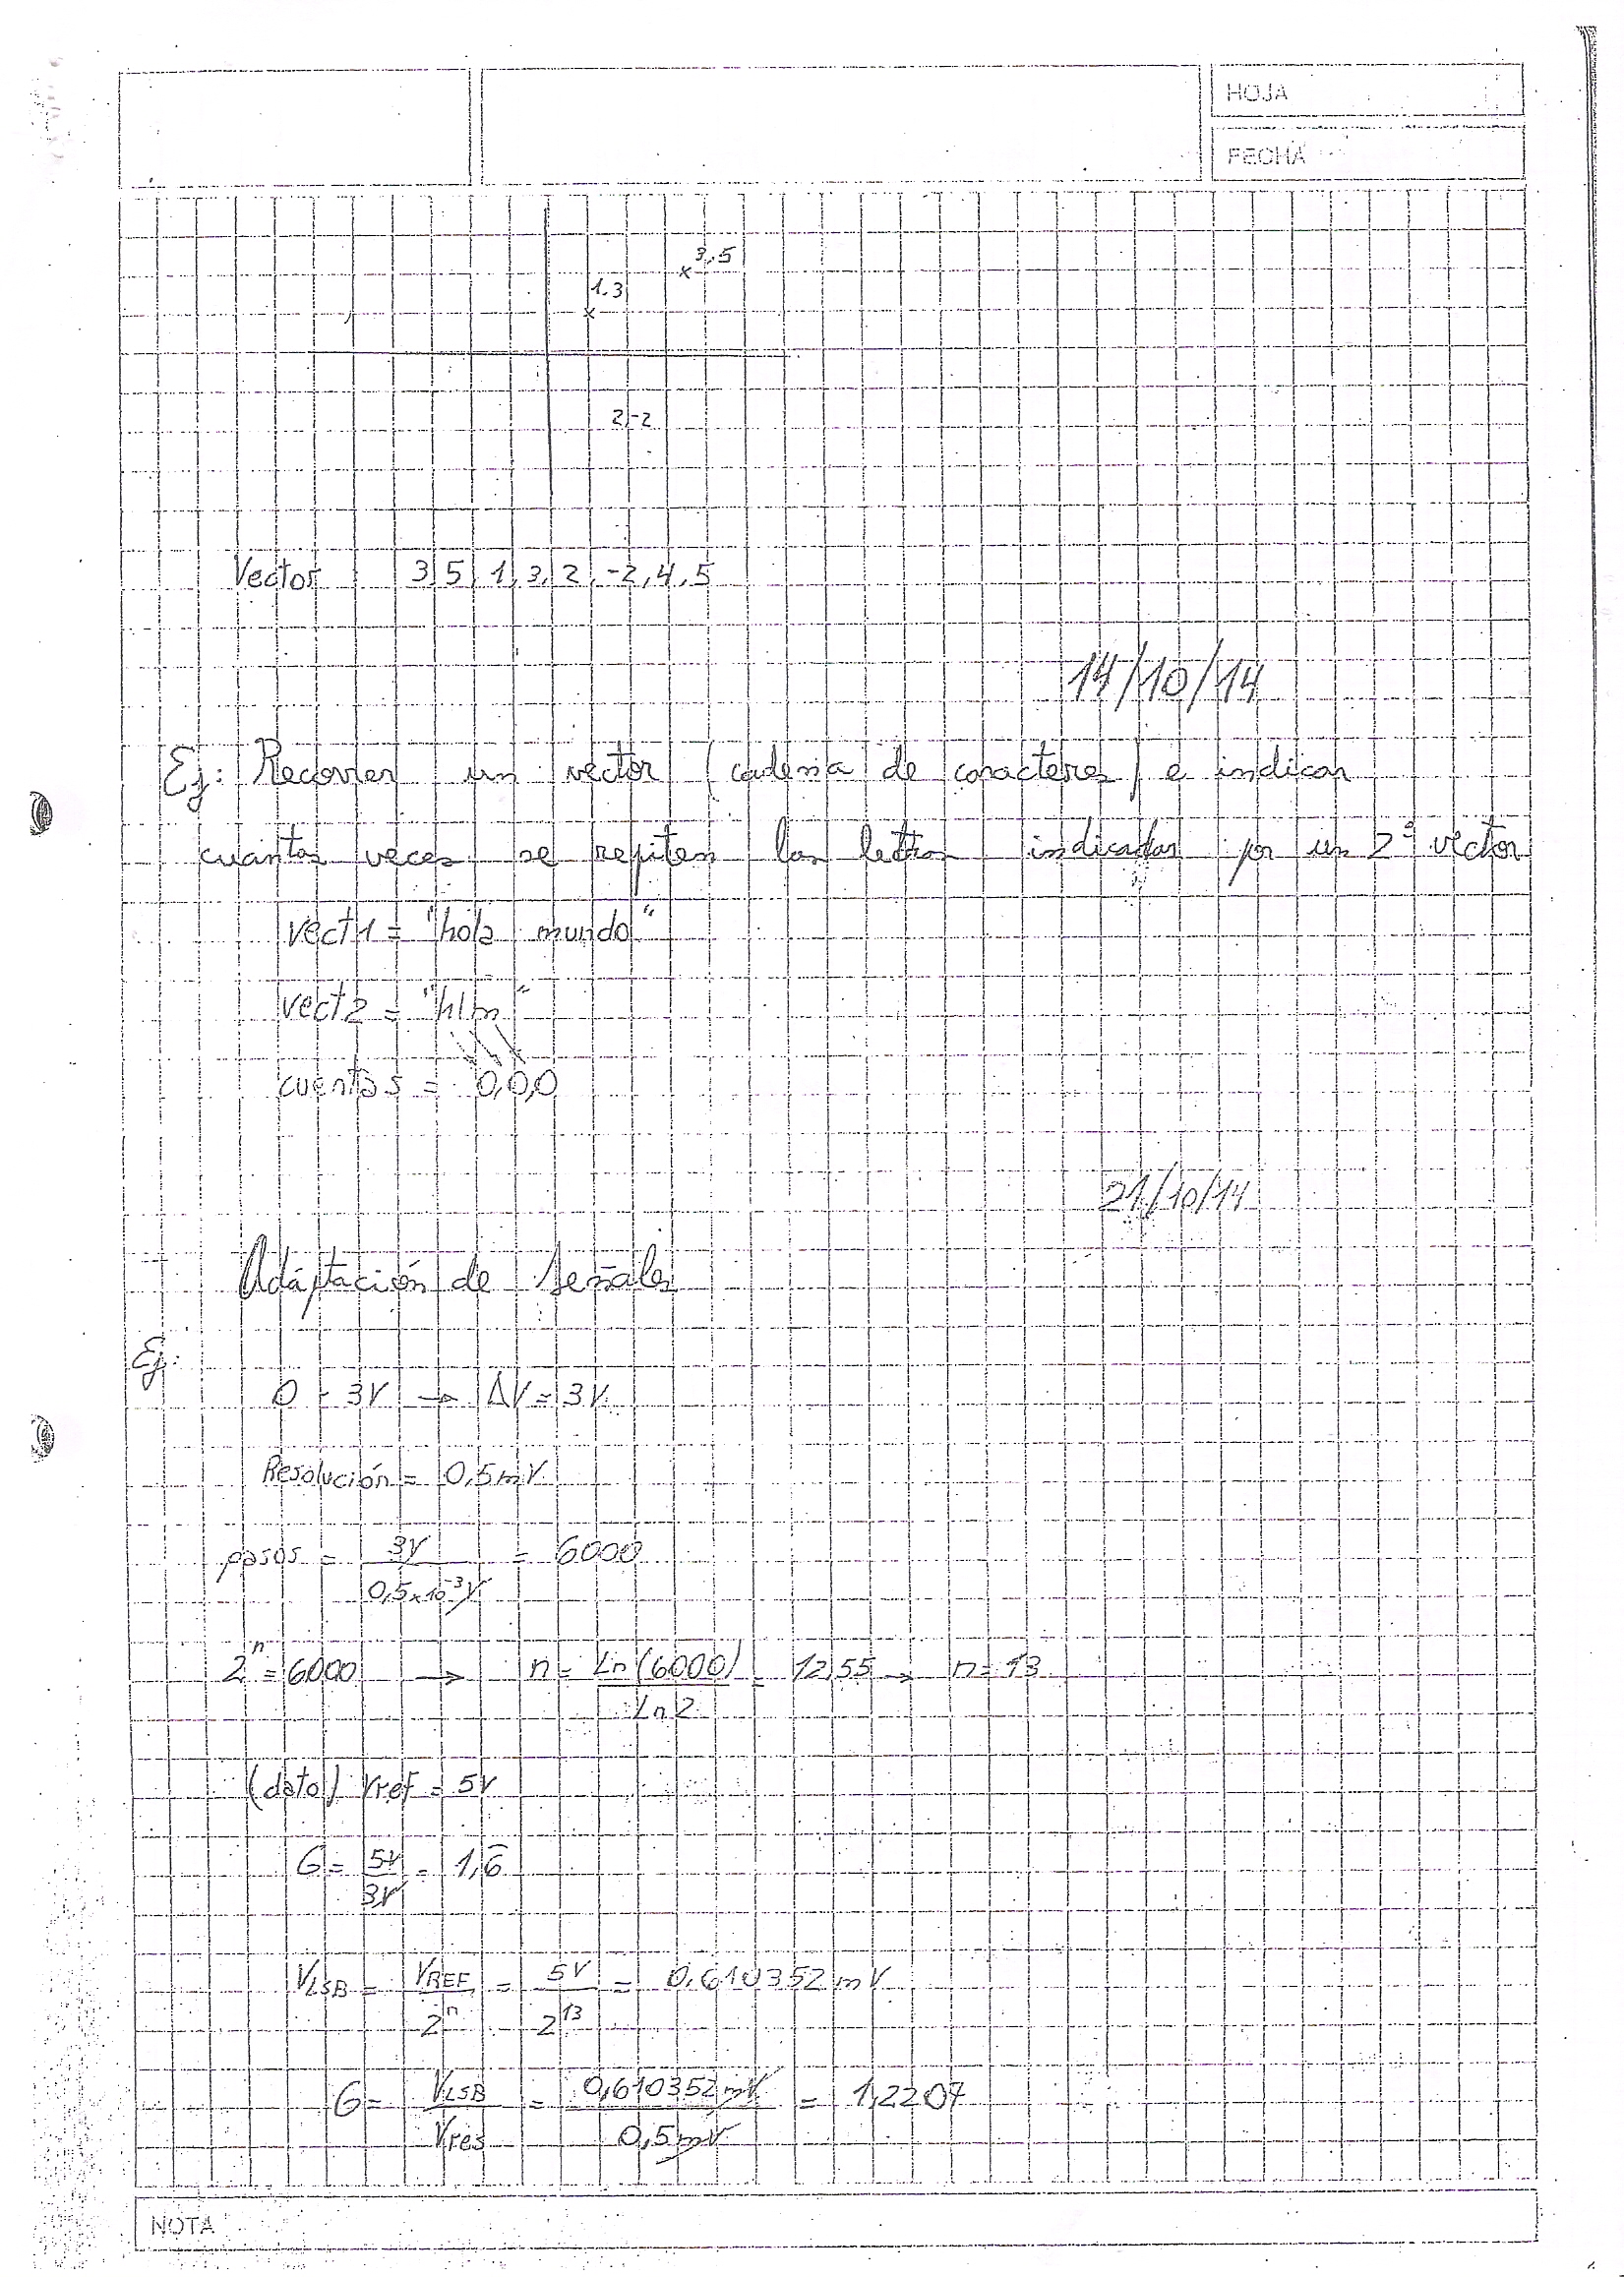 HOJA
FECHA
3,5
x
1,3
x
2,-2
Vector : 3,5,1,3,2,-2,4,5
14/10/14
Ej: Recorrer un vector (cadena de caracteres) e indicar
cuantas veces se repiten las letras indicadas por un 2º vector
vect1 = "hola mundo"
vect2 = "hlm"
cuentas = 0,0,0
21/10/14
Adaptación de señales
Ej:
0 - 3V → ΔV = 3V
Resolución = 0,5mV
pasos = 3V / 0,5x10⁻³V = 6000
2ⁿ = 6000 → n = Ln(6000) / Ln 2 = 12,55 → n = 13
(dato) Vref = 5V
G = 5V / 3V = 1,6̂
VLSB = VREF / 2ⁿ = 5V / 2¹³ = 0,610352 mV
G = VLSB / Vres = 0,610352 mV / 0,5 mV = 1,2207
NOTA